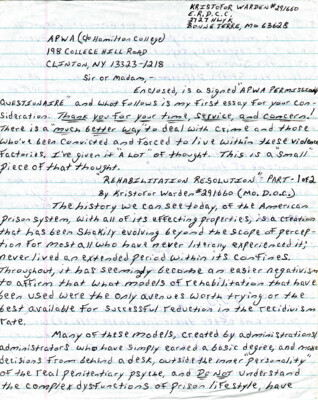 KRISTOFOR WARDEN #291660
E.R.D.C.C.
2727 HWY K
BONNE TERRE, MO 63628
APWA (c/o Hamilton College)
198 COLLEGE HILL ROAD
CLINTON, NY 13323-1218
Sir or Madam,
Enclosed, is a signed "APWA PERMISSIONS
QUESTIONAIRE" and what follows is my first essay for your con-
sideration. Thank you for your time, service, and concern!
There is a "much better way" to deal with crime and those
who've been convicted and forced to live within these violence
factories, I've given it "A LOT" of thought. This is a small
piece of that thought.
"REHABILITATION RESOLUTION" PART-1 of 2
By Kristofor Warden #291660 (Mo. D.O.C.)
The history we can see today, of the American
Prison system, with all of its effecting properties, is a creation
that has been shakily evolving beyond the scope of percep-
tion for most all who have never literally experienced it;
never lived an extended period within its confines.
Throughout, it has seemingly become an easier negativism
to affirm that what models of rehabilitation that have
been used were the only avenues worth trying or the
best available for successful reduction in the recidivism
rate.
Many of these models, created by administrations/
administrators who have simply earned a basic degree, and make
decisions from behind a desk, outside the inner "personality"
of the real penitentiary psyche, and DO NOT understand
the complex dysfunctions of prison lifestyle, have